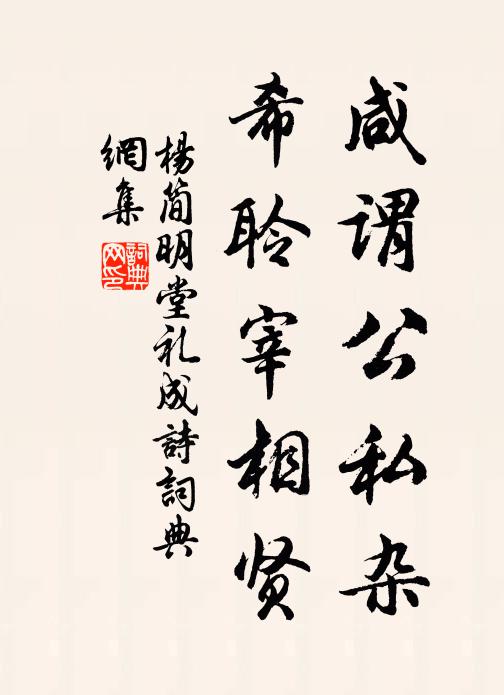 咸谓公私杂
希聆宰相贤
杨简明堂礼成詩詞典
網集
詞典网印